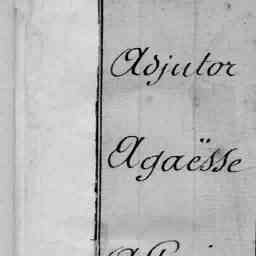 Adjutor
Agaësse